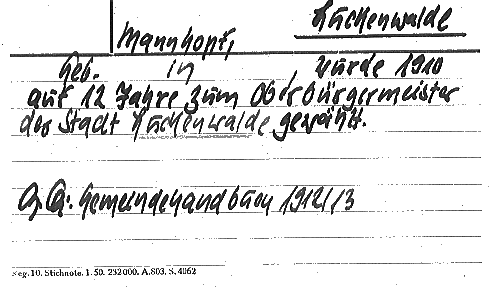 Luckenwalde
Mannkopf,
Geb. in , wurde 1910
auf 12 Jahre zum Oberbürgermeister
der Stadt Luckenwalde gewählt.
Gemeindehandbuch 1912/13
Reg. 10. Stichnote. 1. 50. 232000. A. 803. S. 4062